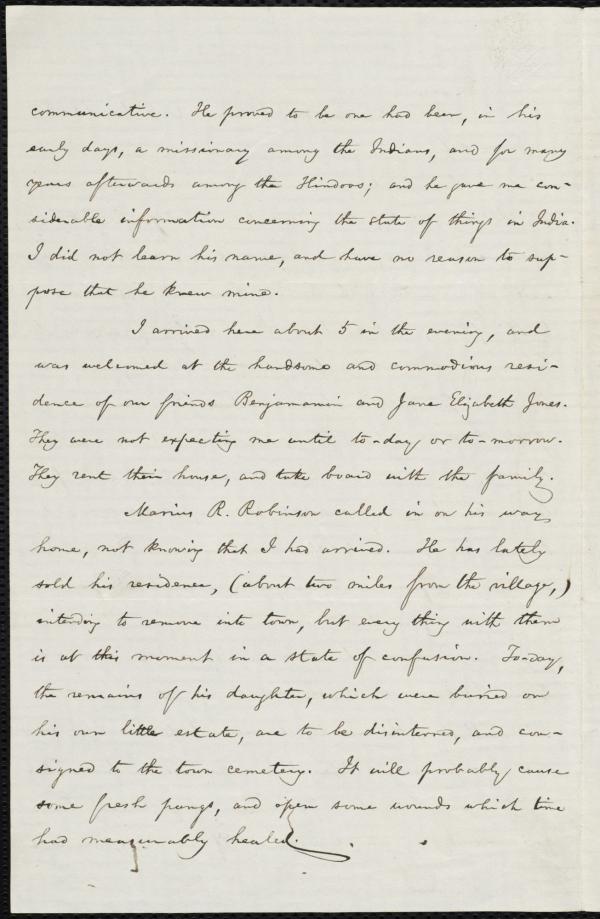 communicative. He proved to be one had been, in his
early days, a missionary among the Indians, and for many
years afterwards among the Hindoos; and he gave me con-
siderable information concerning the state of things in India.
I did not learn his name, and have no reason to sup-
pose that he knew mine.
I arrived here about 5 in the evening, and
was welcomed at the handsome and commodious resi-
dence of our friends Benjamamin and Jane Elizabeth Jones.
They were not expecting me until to-day or to-morrow.
They rent their house, and take board with the family.
Marius R. Robinson called in on his way
home, not knowing that I had arrived. He has lately
sold his residence, (about two miles from the village,)
intending to remove into town, but every thing with them
is at this moment in a state of confusion. To-day,
the remains of his daughter, which were buried on
his own little estate, are to be disinterred, and con-
signed to the town cemetery. It will probably cause
some fresh pangs, and open some wounds which time
had measurably healed.